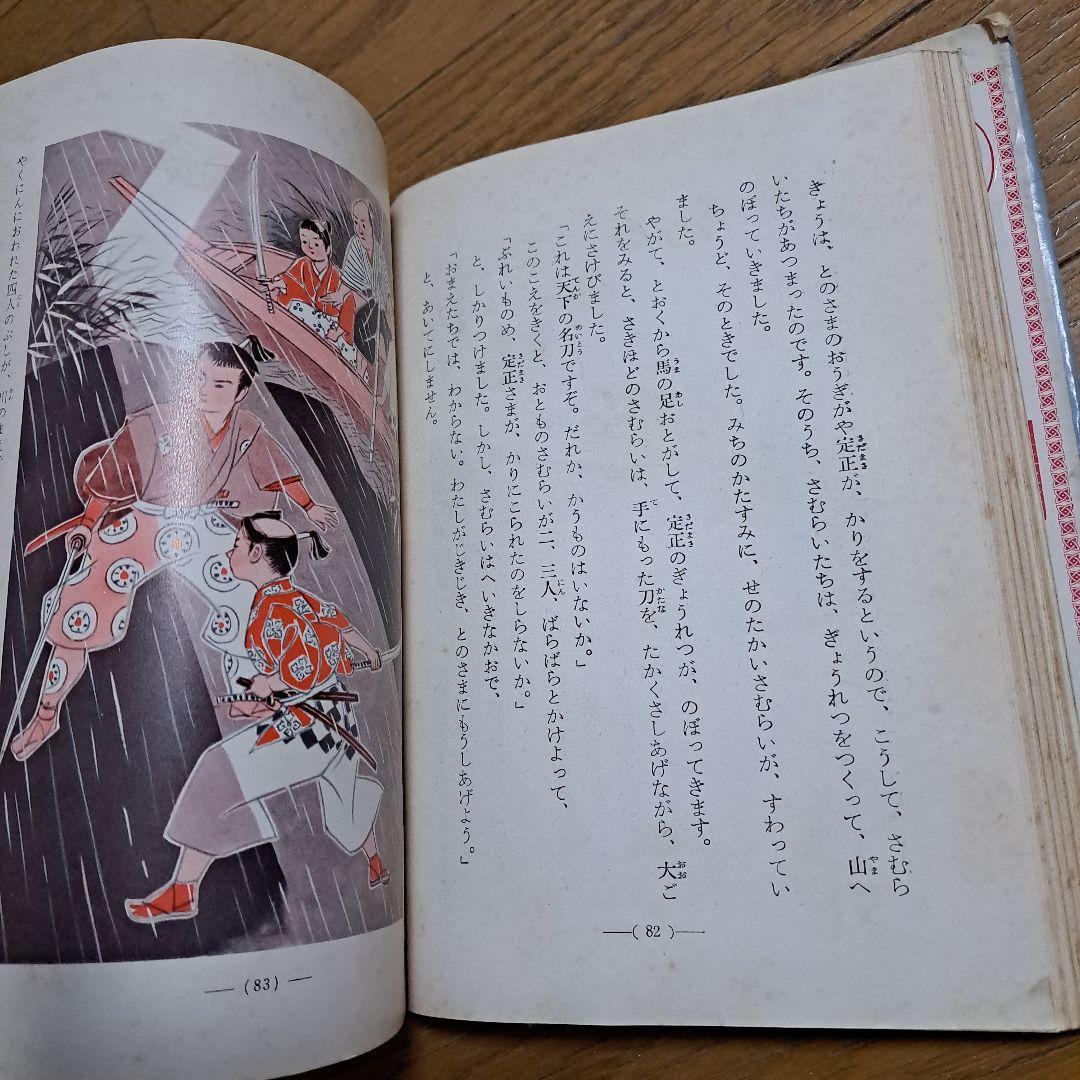 きょうは、とのさまのおうぎがや定正が、かりをするというので、こうして、さむら
いたちがあつまったのです。そのうち、さむらいたちは、ぎょうれつをつくって、山へ
のぼっていきました。
ちょうど、そのときでした。みちのかたすみに、せのたかいさむらいが、すわってい
ました。
やがて、とおくから馬の足おとがして、定正のぎょうれつが、のぼってきます。
それをみると、さきほどのさむらいは、手にもった刀を、たかくさしあげながら、大ご
えにさけびました。
「これは天下の名刀ですぞ。だれか、かうものはいないか。」
このこえをきくと、おとものさむらいが二、三人、ばらばらとかけよって、
「ぶれいものめ、定正さまが、かりにこられたのをしらないか。」
と、しかりつけました。しかし、さむらいはへいきなかおで、
「おまえたちでは、わからない。わたしがじきじき、とのさまにもうしあげよう。」
と、あいてにしません。
(82)
やくにんにおわれた四人のぶしが、川の
(83)